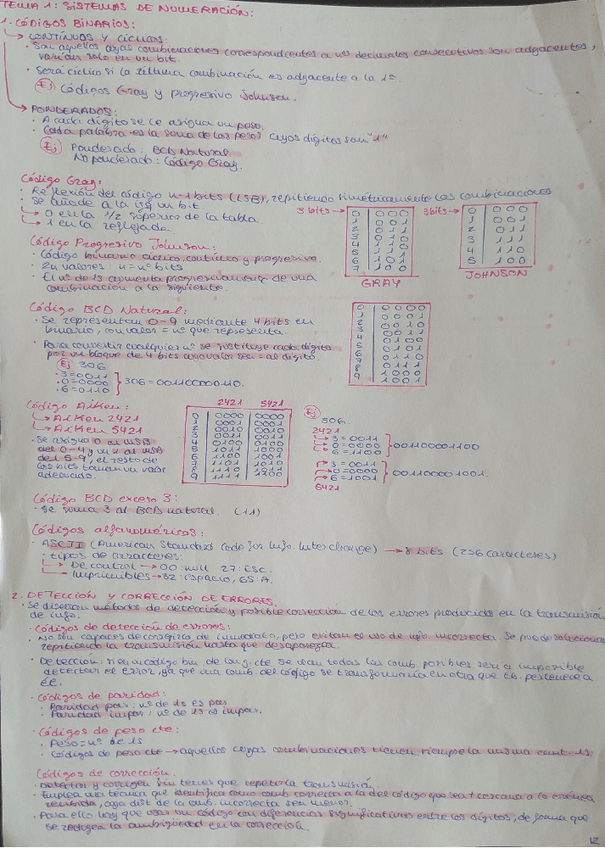 TEMA 1: SISTEMAS DE NUMERACIÓN:
1. CÓDIGOS BINARIOS:
CONTINUOS Y CÍCLICOS:
· Son aquellos cuyas combinaciones correspondientes a nos decimales consecutivos son adyacentes,
varían solo en un bit.
· Será cíclico si la última combinación es adyacente a la 1ª.
Ej Códigos Gray y progresivo Johnson.
PONDERADOS:
· A cada dígito se le asigna un peso.
· Cada palabra es la suma de los pesos cuyos dígitos son "1"
Ej Ponderado: BCD Natural
No ponderado: Código Gray.
Código Gray:
· Reflexión del código n-1 bits (LSB), repitiendo simétricamente las combinaciones
· Se añade a la izq un bit.
→ 0 en la 1/2 superior de la tabla.
→ 1 en la reflejada.
3 bits →
0 000
1 001
2 011
3 010
4 110
5 111
6 101
7 100
GRAY
3 bits →
0 000
1 001
2 011
3 111
4 110
5 100
JOHNSON
Código Progresivo Johnson:
· Código binario cíclico, continuo y progresivo.
· 2n valores n = nº bits
· El nº de 1s aumenta progresivamente de una
combinación a la siguiente.
Código BCD Natural:
· Se representan 0-9 mediante 4 bits en
binario, con valores = nº que representa.
· Para convertir cualquier nº se sustituye cada dígito
por un bloque de 4 bits con valor = al dígito
Ej 306
· 3 = 0011
· 0 = 0000
· 6 = 0110
306 = 001100000110.
0 0000
1 0001
2 0010
3 0011
4 0100
5 0101
6 0110
7 0111
8 1000
9 1001
Código Aiken:
→ Aiken 2421
→ Aiken 5421
· Se asigna 0 al MSB
del 0-4 y un 1 al MSB
del 5-9, el resto de
los bits toman un valor
adecuado.
2421 5421
0 0000 0000
1 0001 0001
2 0010 0010
3 0011 0011
4 0100 0100
5 1011 1000
6 1100 1001
7 1101 1010
8 1110 1011
9 1111 1100
Ej
306.
2421
→ 3 = 0011
→ 0 = 0000
→ 6 = 1100
001100001100
→ 3 = 0011
→ 0 = 0000
→ 6 = 1001
001100001001.
5421
Código BCD exceso 3:
· Se suma 3 al BCD natural (11)
Códigos alfanuméricos:
· ASCII (American Standard Code for Info. Interchange) → 8 bits (256 caracteres)
· tipos de caracteres:
→ De control → 00: null 27: ESC.
→ Imprimibles → 32: espacio, 65: A.
2. DETECCIÓN Y CORRECCIÓN DE ERRORES.
· Se diseñan métodos de detección y posible corrección de los errores producidos en la transmisión
de info.
· Códigos de detección de errores:
· No son capaces de corregirla de inmediato, pero evitan el uso de info. incorrecta. Se puede solucionar
repitiendo la transmisión hasta que desaparezca.
· Detección: si en un código bin de long. cte se usan todas las comb. posibles será imposible
detectar el error, ya que una comb del código se transformaría en otra que tb. pertenece a
él.
· Códigos de paridad:
· Paridad par: nº de 1s es par
· Paridad impar: nº de 1s es impar.
· Códigos de peso cte:
· Peso: nº de 1s
· Códigos de peso cte → aquellos cuyas combinaciones tienen siempre la misma cant. 1s.
Códigos de corrección.
· Detectan y corrigen sin tener que repetir la transmisión
· Emplea una técnica que identifica como comb correcta a la del código que sea + cercana a la errónea
recibida, cuya dist de la comb. incorrecta sea menor.
· Para ello hay que usar un código con diferencias significativas entre los dígitos, de forma que
se reduzca la ambigüedad en la corrección.